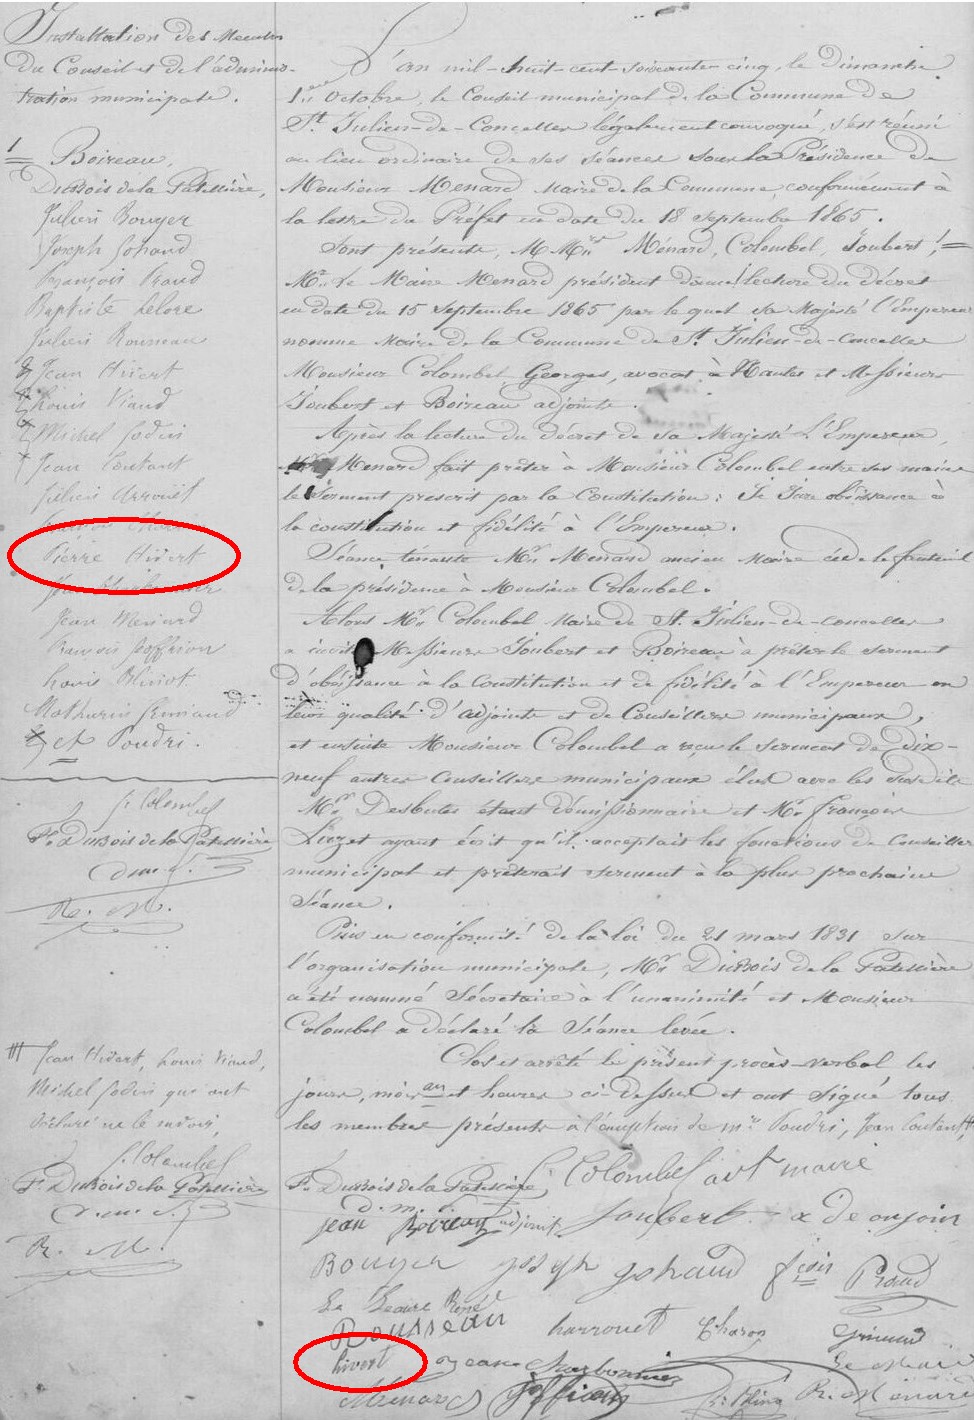 Installation des Membres
du Conseil et de l'adminis-
tration municipale.
1 Boireau,
DuBois de la Patellière,
Julien Bouyer
Joseph Gohaud
François Praud
Baptiste Lelore
Julien Rousseau
Jean Hivert
Louis Viaud
Michel Godin
Jean Coutant
Julien Arrouët
Pierre Hivert
Jean Menard
François Joffrion
Louis
Mathurin
et Poudri.
G. Colombel
F. DuBois de la Patellière
d. m. s.
R. M.
Jean Hivert, Louis Viaud,
Michel Godin qui ont
déclaré ne le savoir,
G. Colombel
F. DuBois de la Patellière
d. m. s.
R. M.
L'an mil-huit-cent-soixante-cinq, le dimanche
1er Octobre, le Conseil municipal de la Commune de
St. Julien-de-Concelles légalement convoqué, s'est réuni
au lieu ordinaire de ses séances sous la Présidence de
Monsieur Menard Maire de la Commune, conformément à
la lettre du Préfet en date du 18 septembre 1865.
Sont présents, M.Mrs Ménard, Colombel, Joubert,
Mr. le Maire Menard président donne lecture du décret
en date du 15 Septembre 1865 par le quel sa Majesté l'Empereur
nomme Maire de la Commune de St. Julien-de-Concelles
Monsieur Colombel Georges, avocat à Nantes et Messieurs
Joubert et Boireau adjoints.
Après la lecture du décret de Sa Majesté L'Empereur,
Menard fait prêter à Monsieur Colombel entre ses mains
le Serment prescrit par la Constitution: Je Jure obéissance à
la constitution et fidélité à l'Empereur.
Séance tenante Mr. Menard ancien Maire cède le fauteuil
de la présidence à Monsieur Colombel.
Alors Mr. Colombel Maire de St. Julien-de-Concelles
a invité Messieurs Joubert et Boireau à prêter le serment
d'obéissance à la Constitution et de fidélité à l'Empereur en
leur qualité d'adjoints et de Conseillers municipaux,
et ensuite Monsieur Colombel a reçu le serment de Dix-
neuf autres Conseillers municipaux élus avec les susdits
Mr. étant démissionnaire et Mr. François
ayant écrit qu'il acceptait les fonctions de Conseiller
municipal et prêterait serment à la plus prochaine
Séance.
Puis en conformité de la loi du 21 mars 1831 sur
l'organisation municipale, Mr. DuBois de la Patellière
a été nommé Sécretaire à l'unanimité et Monsieur
Colombel a déclaré la Séance levée.
Clos et arrêté le présent procès-verbal les
jours, mois an et heures ci-dessus et ont signé tous
les membres présents à l'exception de Mrs Poudri, Jean Coutant,
F. DuBois de la Patellière G. Colombel avt maire
d. m. s.
jean Boireau adjoint Joubert
Bouyer joseph gohaud fçois Praud
Rousseau harrouet Charon
hivert jean Charbonnier
Menard Joffrion R. Menard